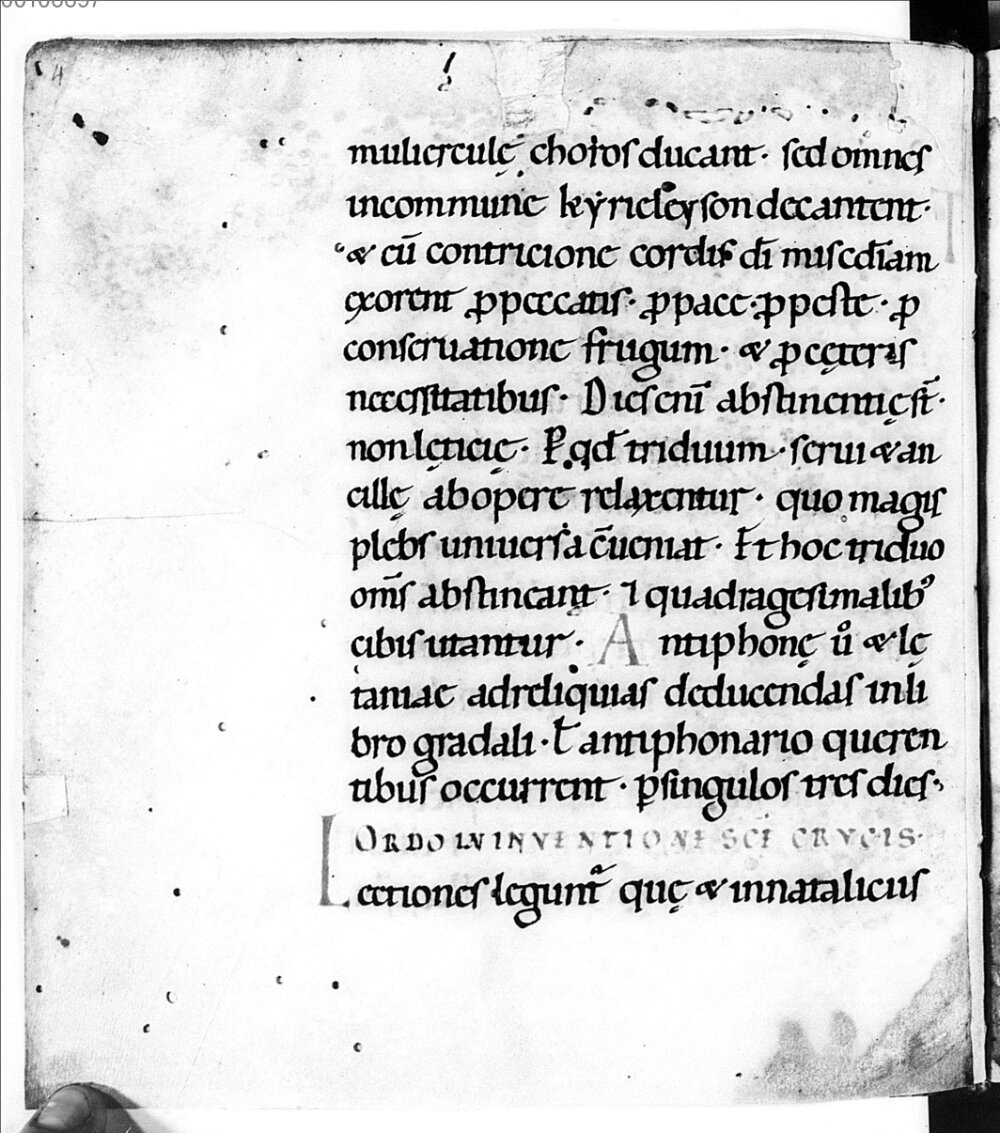 mulierculę choros ducant· sed omnes
incommune kẏrieleyson decantent·
& cū contricione cordis dī mis̄c̄diam
ęxorent ꝓ peccatis· ꝓ pace· ꝓ peste· ꝓ
conseruatione frugum· & ꝓ cęteris
necessitatibus· Dies enī abstinentię st̄·
non lęticię· P̱ qd̄ triduum· serui & an
cillę ab opere relaxentur· quo magis
plebs uniuersa c̄ueniat· Et hoc triduo
om̄s abstineant· ⁊ quadragesimalibꝰ
cibis utantur· Antiphonę ů & lę
taniae ad reliquias deducendas in li
bro gradali· ł antiphonario queren
tibus occurrent· ꝑ singulos tres dies·
ORDO IN INVENTIONE SCĪ CRVCIS·
Lectiones legunt᷑ quę & in nataliciis